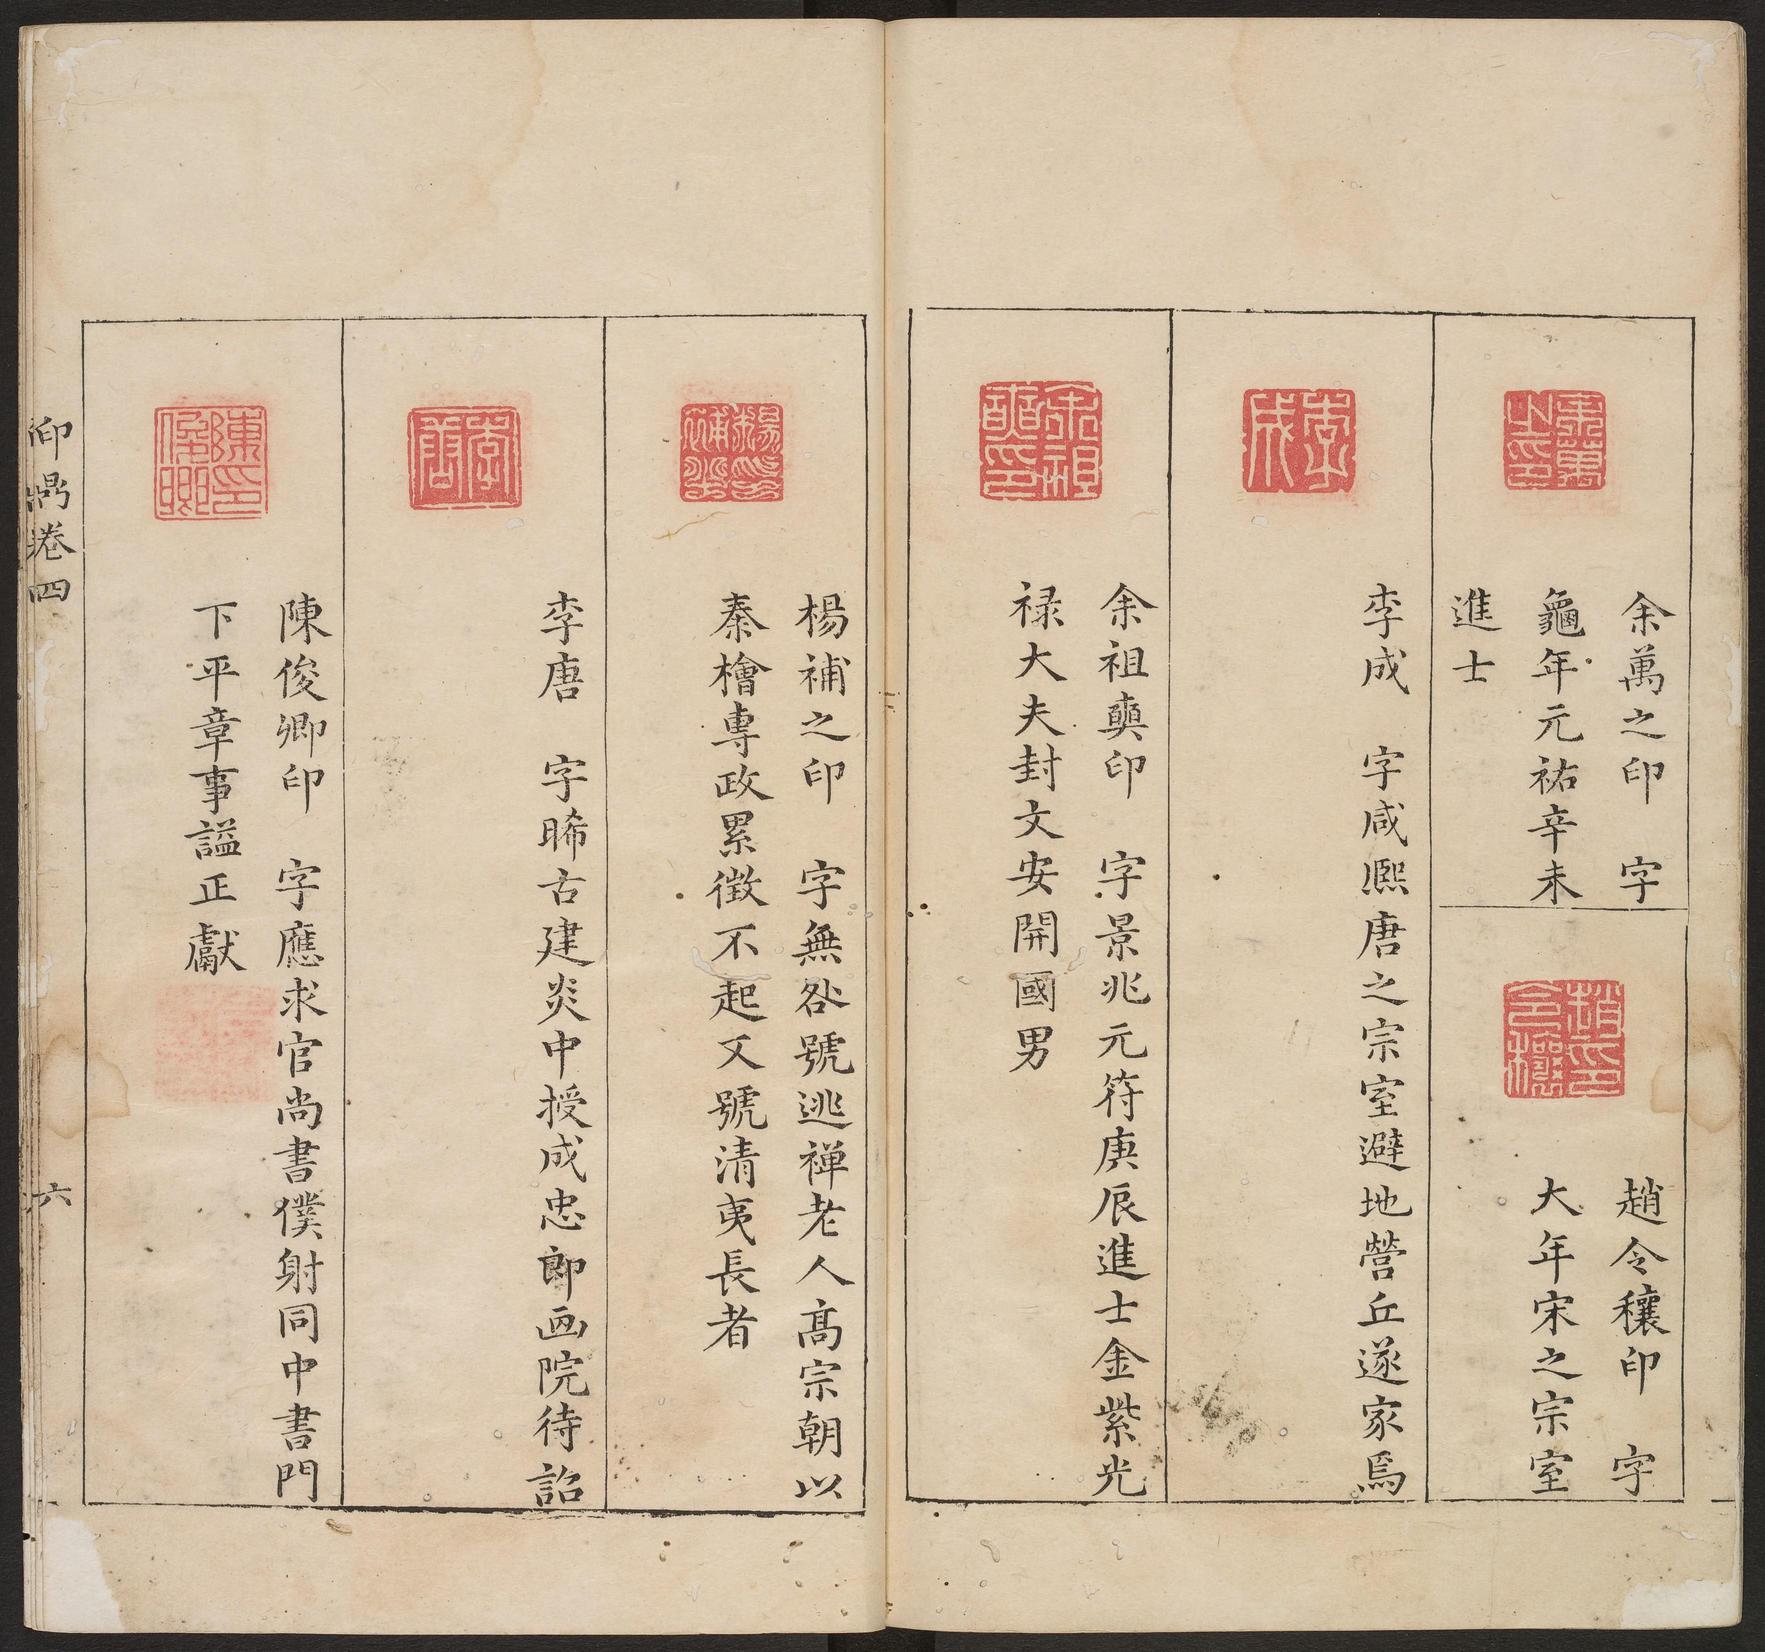 余萬之印　字
龜年元祐辛未
進士
趙令穰印　字
大年宋之宗室
李成　字咸熈唐之宗室避地營丘遂家焉
余祖奭印　字景兆元符庚辰進士金紫光
禄大夫封文安開國男
楊補之印　字無咎號逃禅老人高宗朝以
秦檜專政累徵不起又號清夷長者
李唐　字晞古建炎中授成忠郎画院待詔
陳俊卿印　字應求官尚書僕射同中書門
下平章事謚正獻
卷四
六